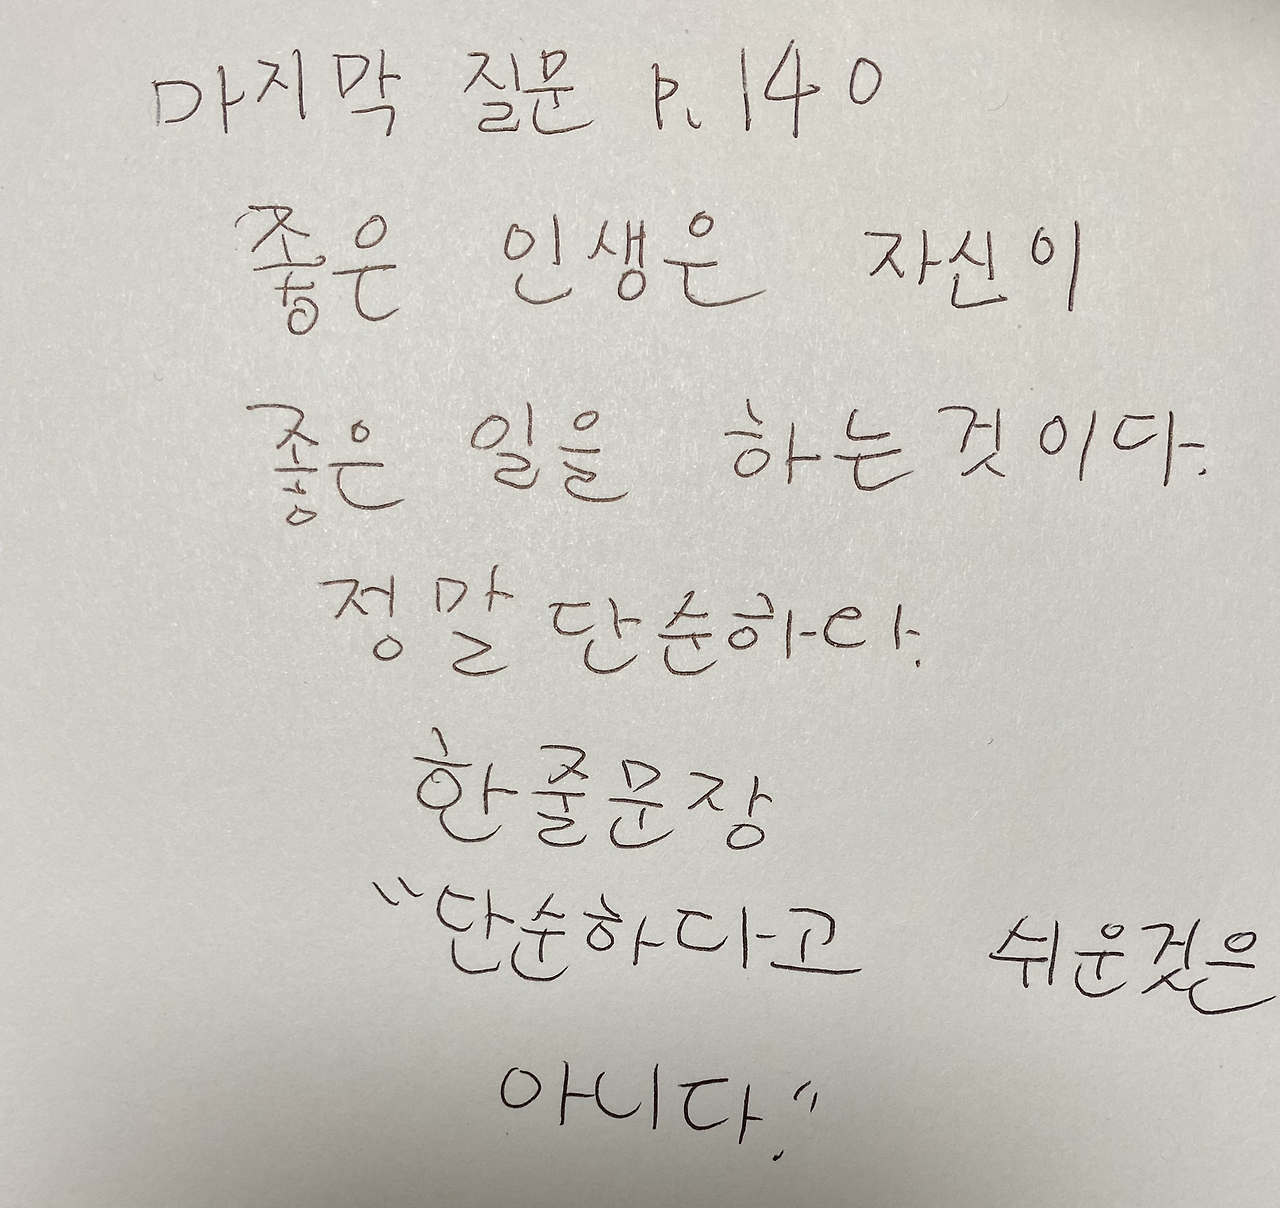 마지막 질문 p.140
좋은 인생은 자신이
좋은 일을 하는것이다.
정말 단순하다.
한줄문장
"단순하다고 쉬운것은
아니다."